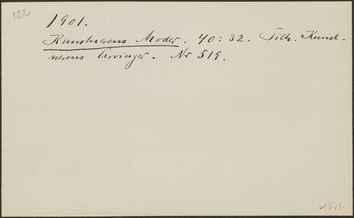 122
1901.
Kunstnerens Moder. 40 : 32. Tilh. Kunst-
nerens Nr 519.